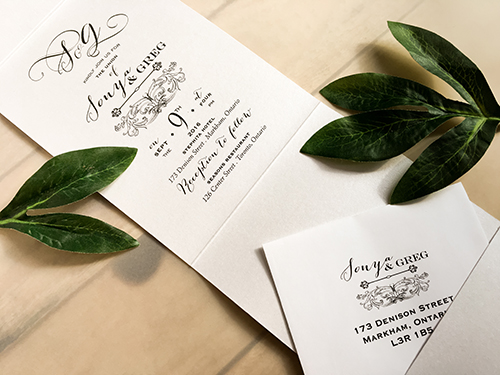 S&G
PLEASE JOIN US FOR
THE UNION
of
Sonya
& GREG
on
SEPT
THE
9
TH
2016
at
FOUR
PM
STEPHTA HOTEL
173 Denison Street . Markham, Ontario
Reception to follow
SEASONS RESTAURANT
126 Center Street . Toronto, Ontario
Sonya & GREG
173 DENISON STREET
MARKHAM, ONTARIO
L3R 1B5